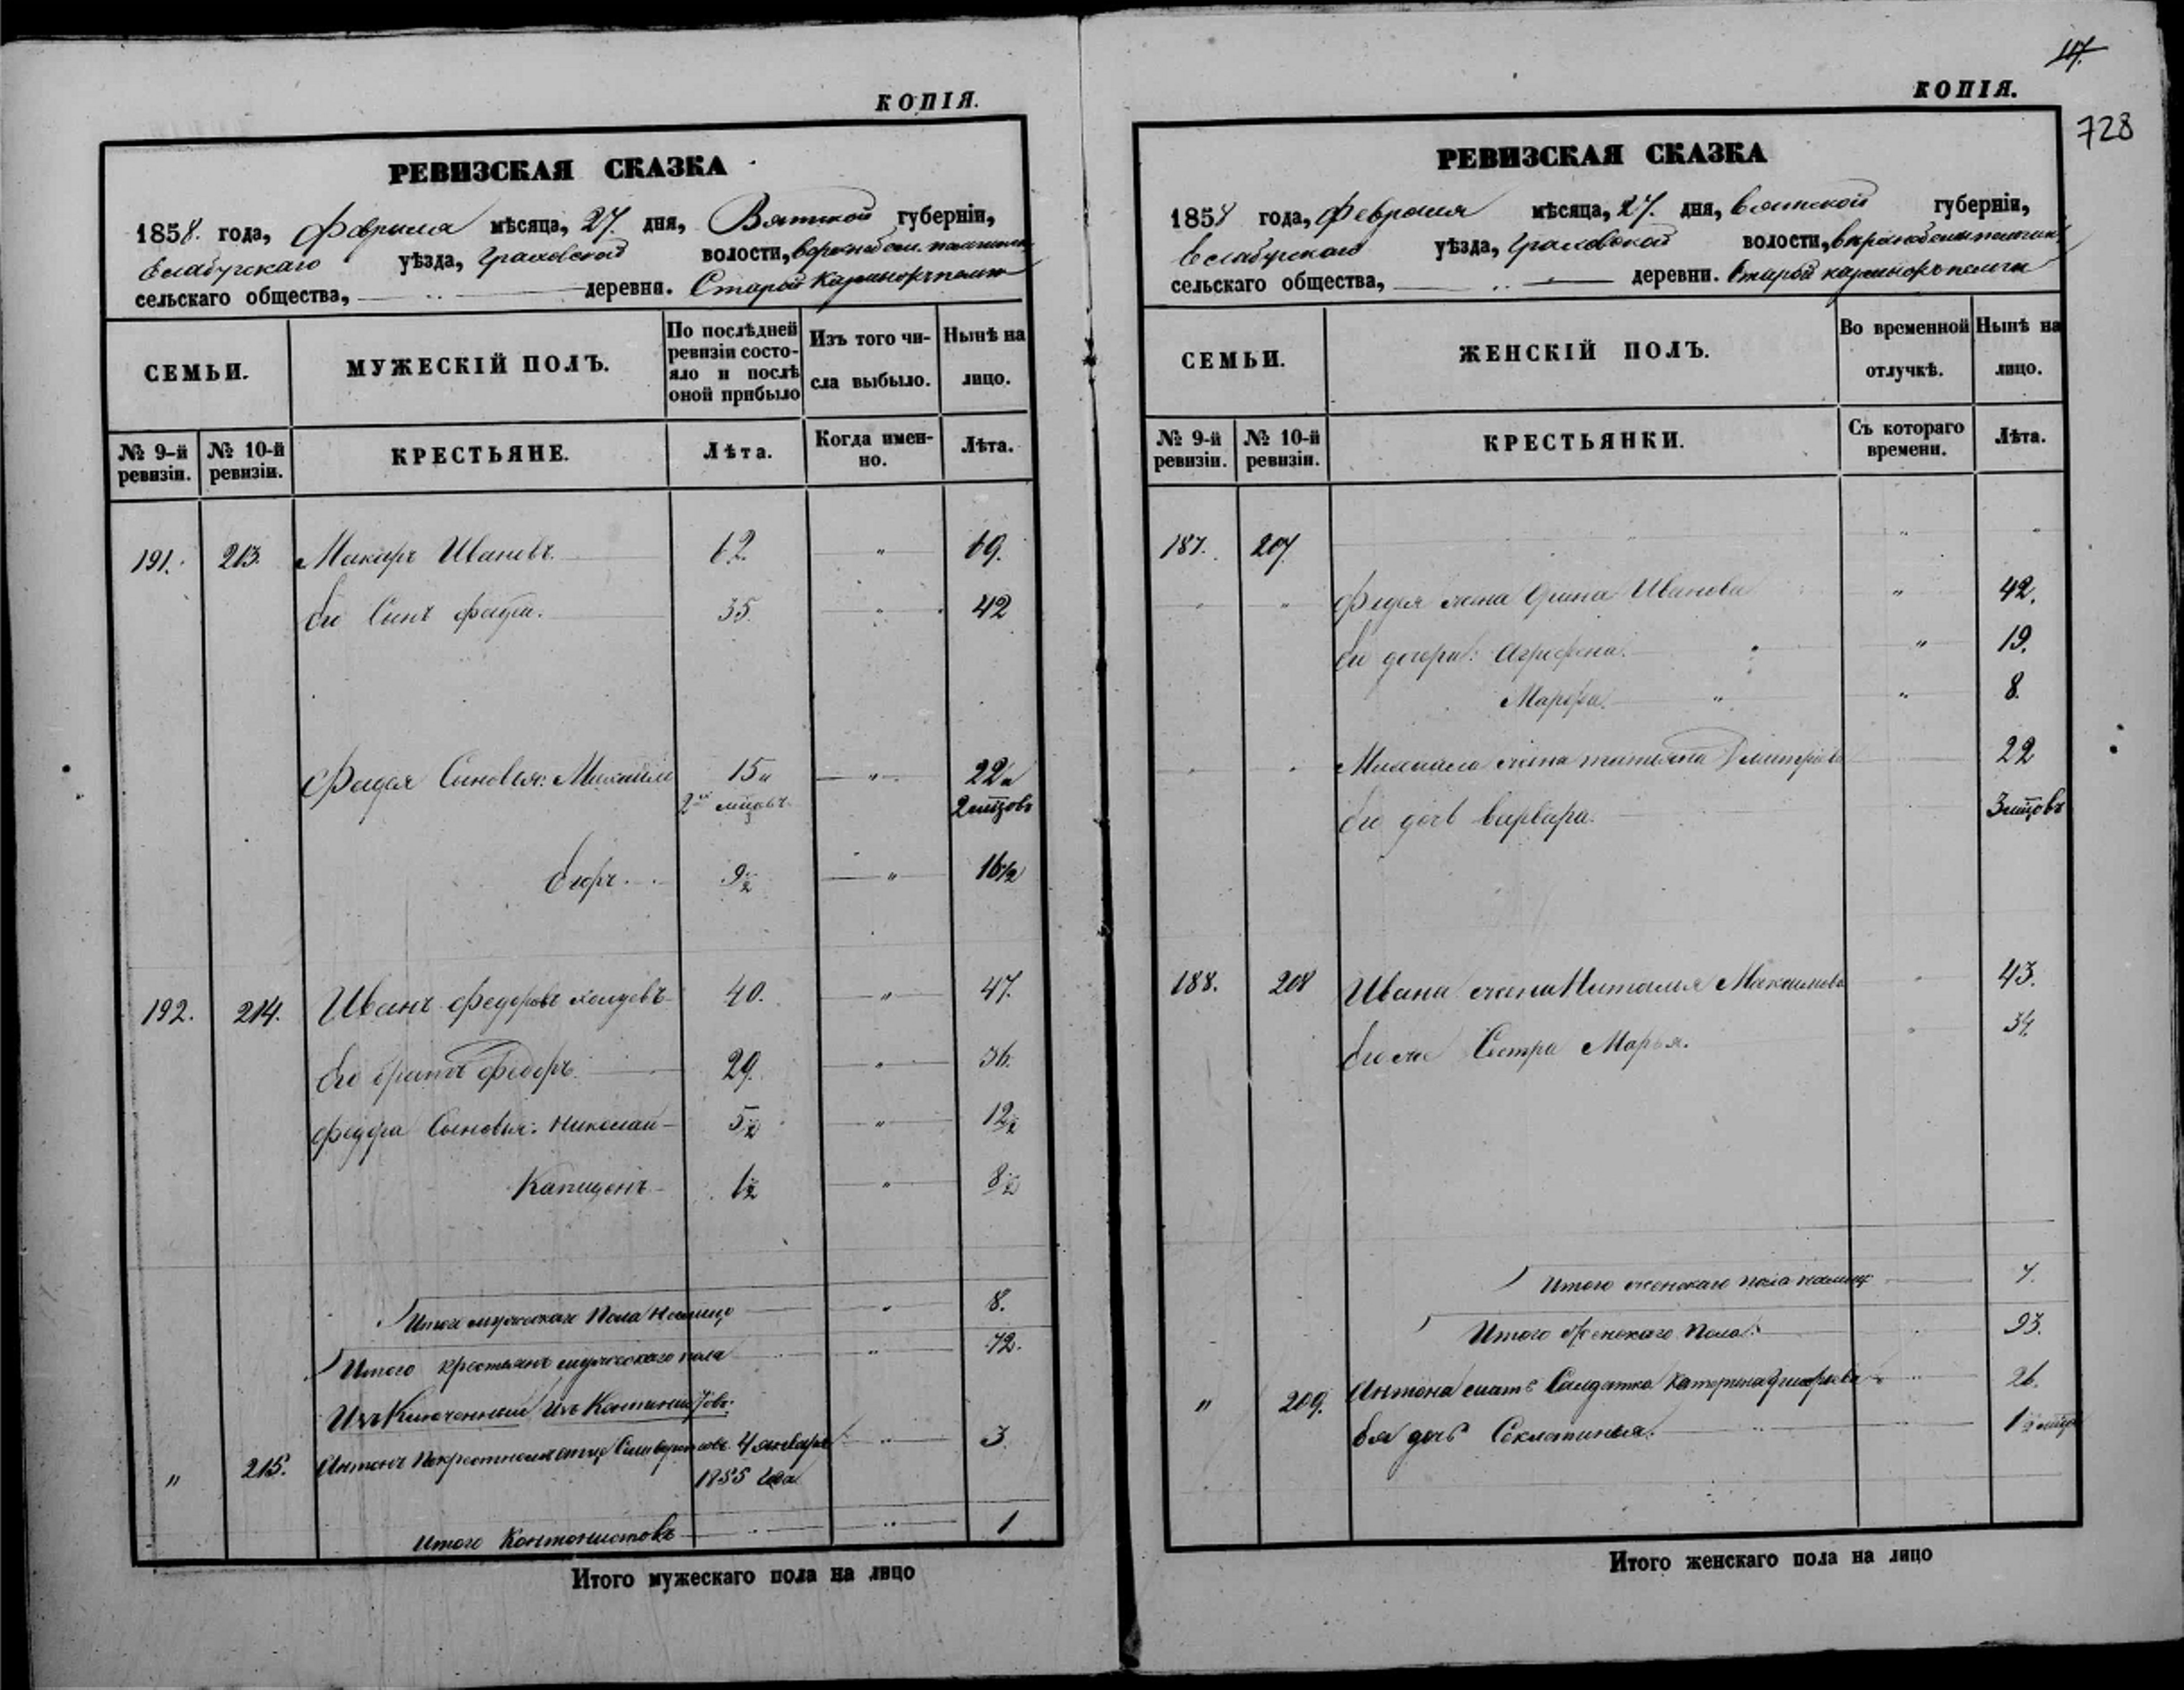 КОПІЯ.
РЕВИЗСКАЯ СКАЗКА
1858. года, Февраля мѣсяца, 27. дня, Вятской губерніи,
Елабугскаго уѣзда, Граховской волости,
сельскаго общества, деревни. Старой
СЕМЬИ. МУЖЕСКІЙ ПОЛЪ. По послѣдней ревизіи состояло и послѣ оной прибыло Изъ того числа выбыло. Нынѣ на лицо.
№ 9-й ревизіи. № 10-й ревизіи. КРЕСТЬЯНЕ. Лѣта. Когда именно. Лѣта.
191. 213. Макаръ Ивановъ 62. " 69.
Его Сынъ Фадей. 35. " 42
Фадея Сыновья: Михайло 15 и " 22 и
2 мѣсецовъ 2 мѣсецовъ
Егоръ 9½ " 16½
192. 214. Иванъ Федоровъ 40. " 47.
Его братъ Федоръ 29. " 36.
Федора Сыновья: Николай 5½ " 12½
Капидонъ 1½ " 8½
Итого мужескаго Пола на лицо " 8.
Итого крестьянъ мужескаго пола " 72.
Изъ
" 215. Антонъ 4 января " 3.
1855 года
Итого Кантонистовъ " 1
Итого мужескаго пола на лицо
117.
КОПІЯ.
728
РЕВИЗСКАЯ СКАЗКА
1858 года, Февраля мѣсяца, 27. дня, Вятской губерніи,
Елабугскаго уѣзда, Граховской волости,
сельскаго общества, деревни. Старой
СЕМЬИ. ЖЕНСКІЙ ПОЛЪ. Во временной отлучкѣ. Нынѣ на лицо.
№ 9-й ревизіи. № 10-й ревизіи. КРЕСТЬЯНКИ. Съ котораго времени. Лѣта.
187. 207 " "
" " Фадея жена Ирина Иванова " 42.
Его дочери: Агрефена. " 19.
Марфа. " " 8.
" " Михаила жена татьяна Дмитріева 22
Его дочь варвара. 3 мѣсецовъ
188. 208 Ивана жена Наталья Максимова " 43.
Его же Сестра Марья. " 34.
Итого женскаго пола налицо 7.
Итого Женскаго Пола: " 93.
" 209. Антона мать Салдатка Катерина " 26.
Ея дочь Секлетинья. " 1½
Итого женскаго пола на лицо